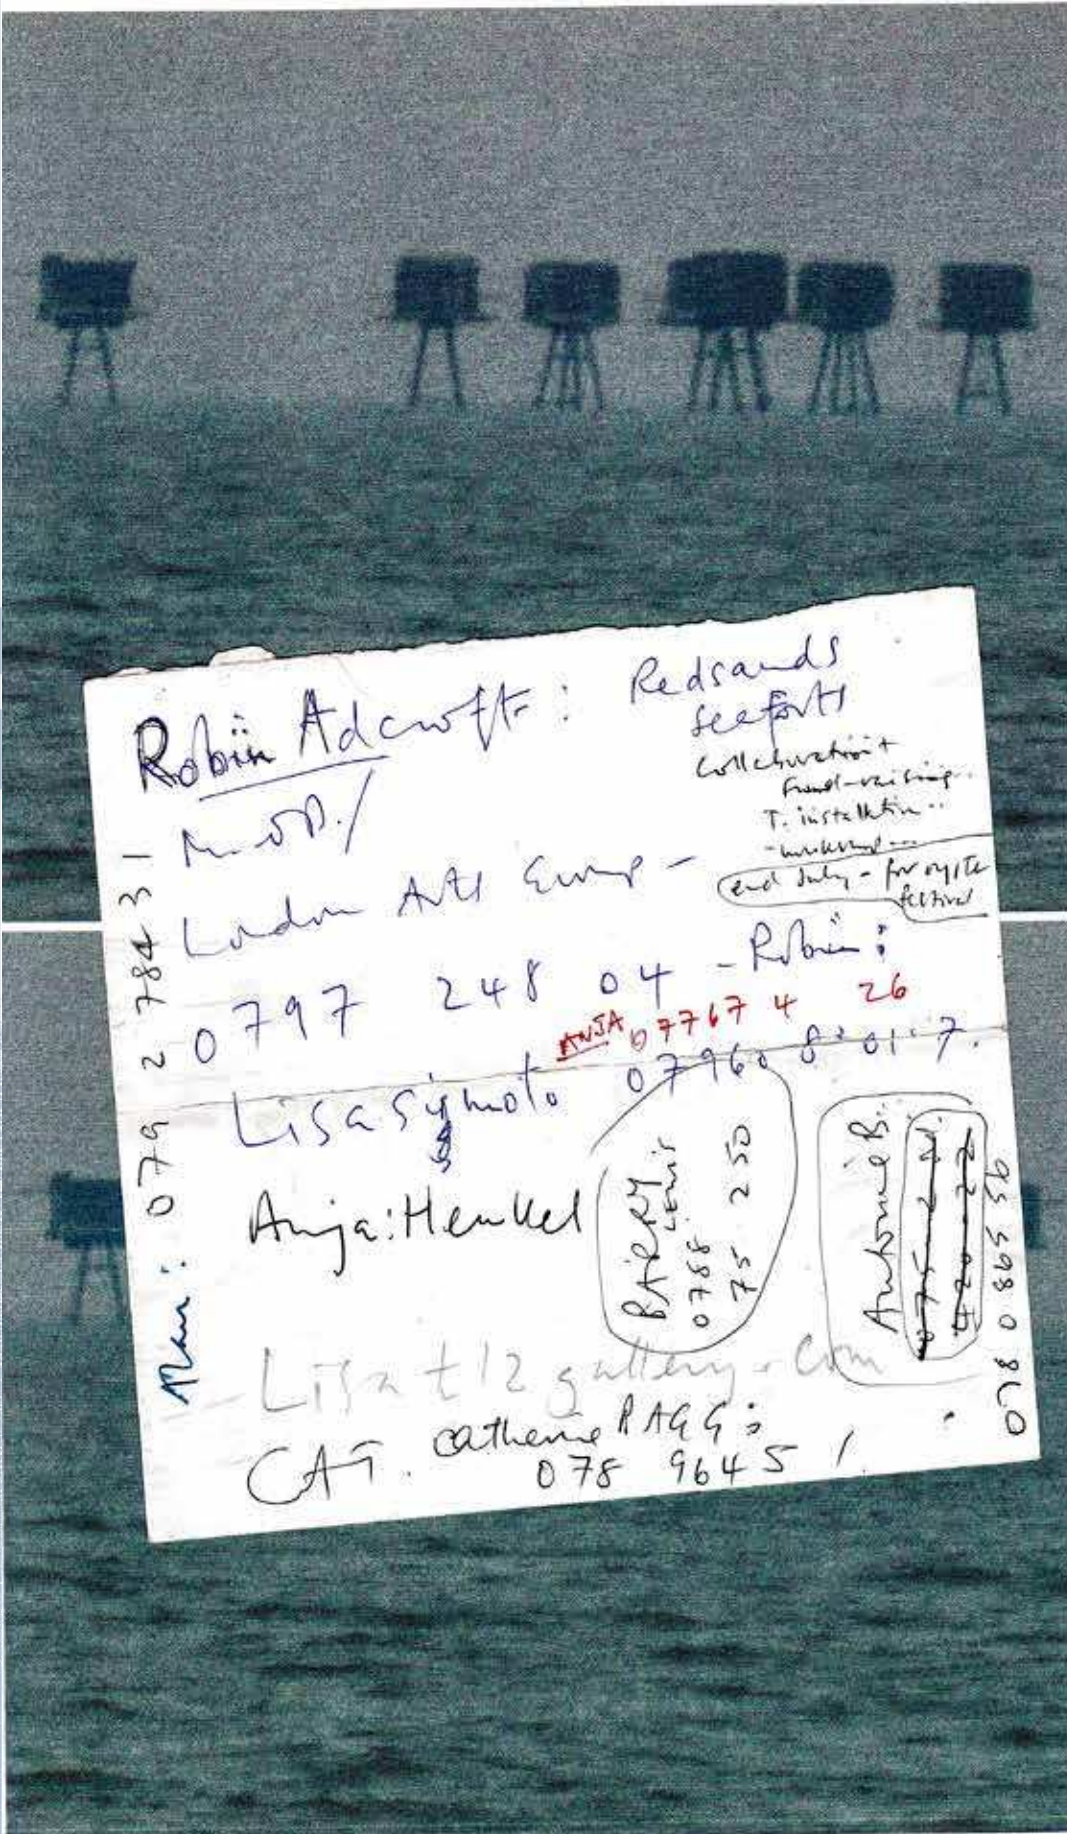 Robin Adcroft: Redsands
seeforts
Collaboration +
Fund-raising..
T. installation..
- workshop...
end July - for oyster
festival
M.OD./
London Arts Europ -
0797 248 04 - Robin:
ANJA 07767 4 26
Lisa 07960 8 01 7.
Anja: Henkel
BARRY
LEWIS
0788
75 250
Antonine B.
075 2
420 22
0780 865 56
Lisa t12gallery.com
CAT. Catherine RAGG:
078 9645 1
: 079 2 784 31